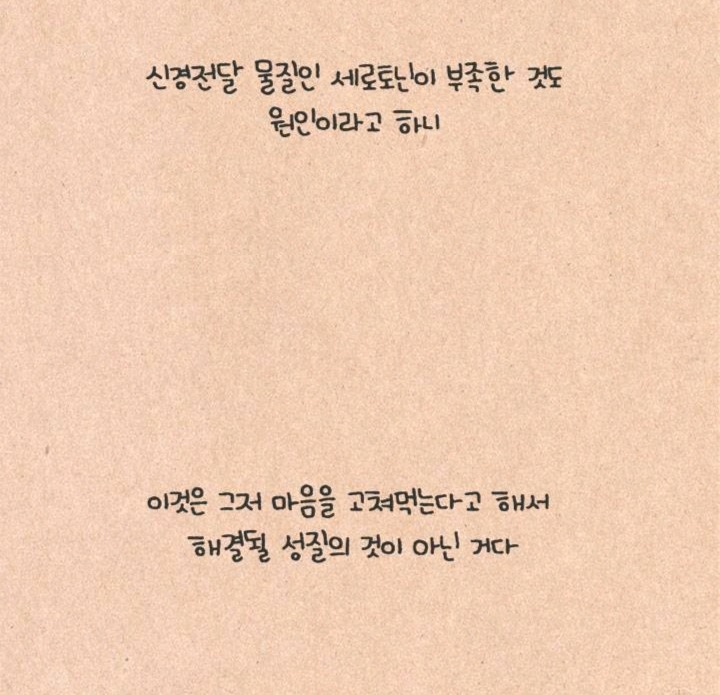 신경전달 물질인 세로토닌이 부족한 것도
원인이라고 하니
이것은 그저 마음을 고쳐먹는다고 해서
해결될 성질의 것이 아닌 거다